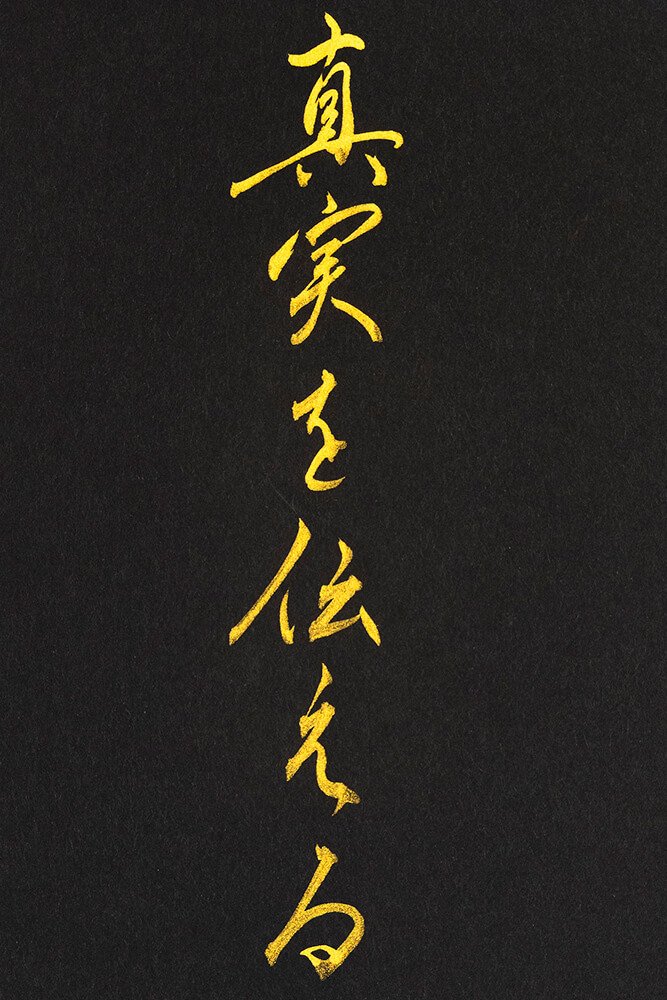 真実を伝える